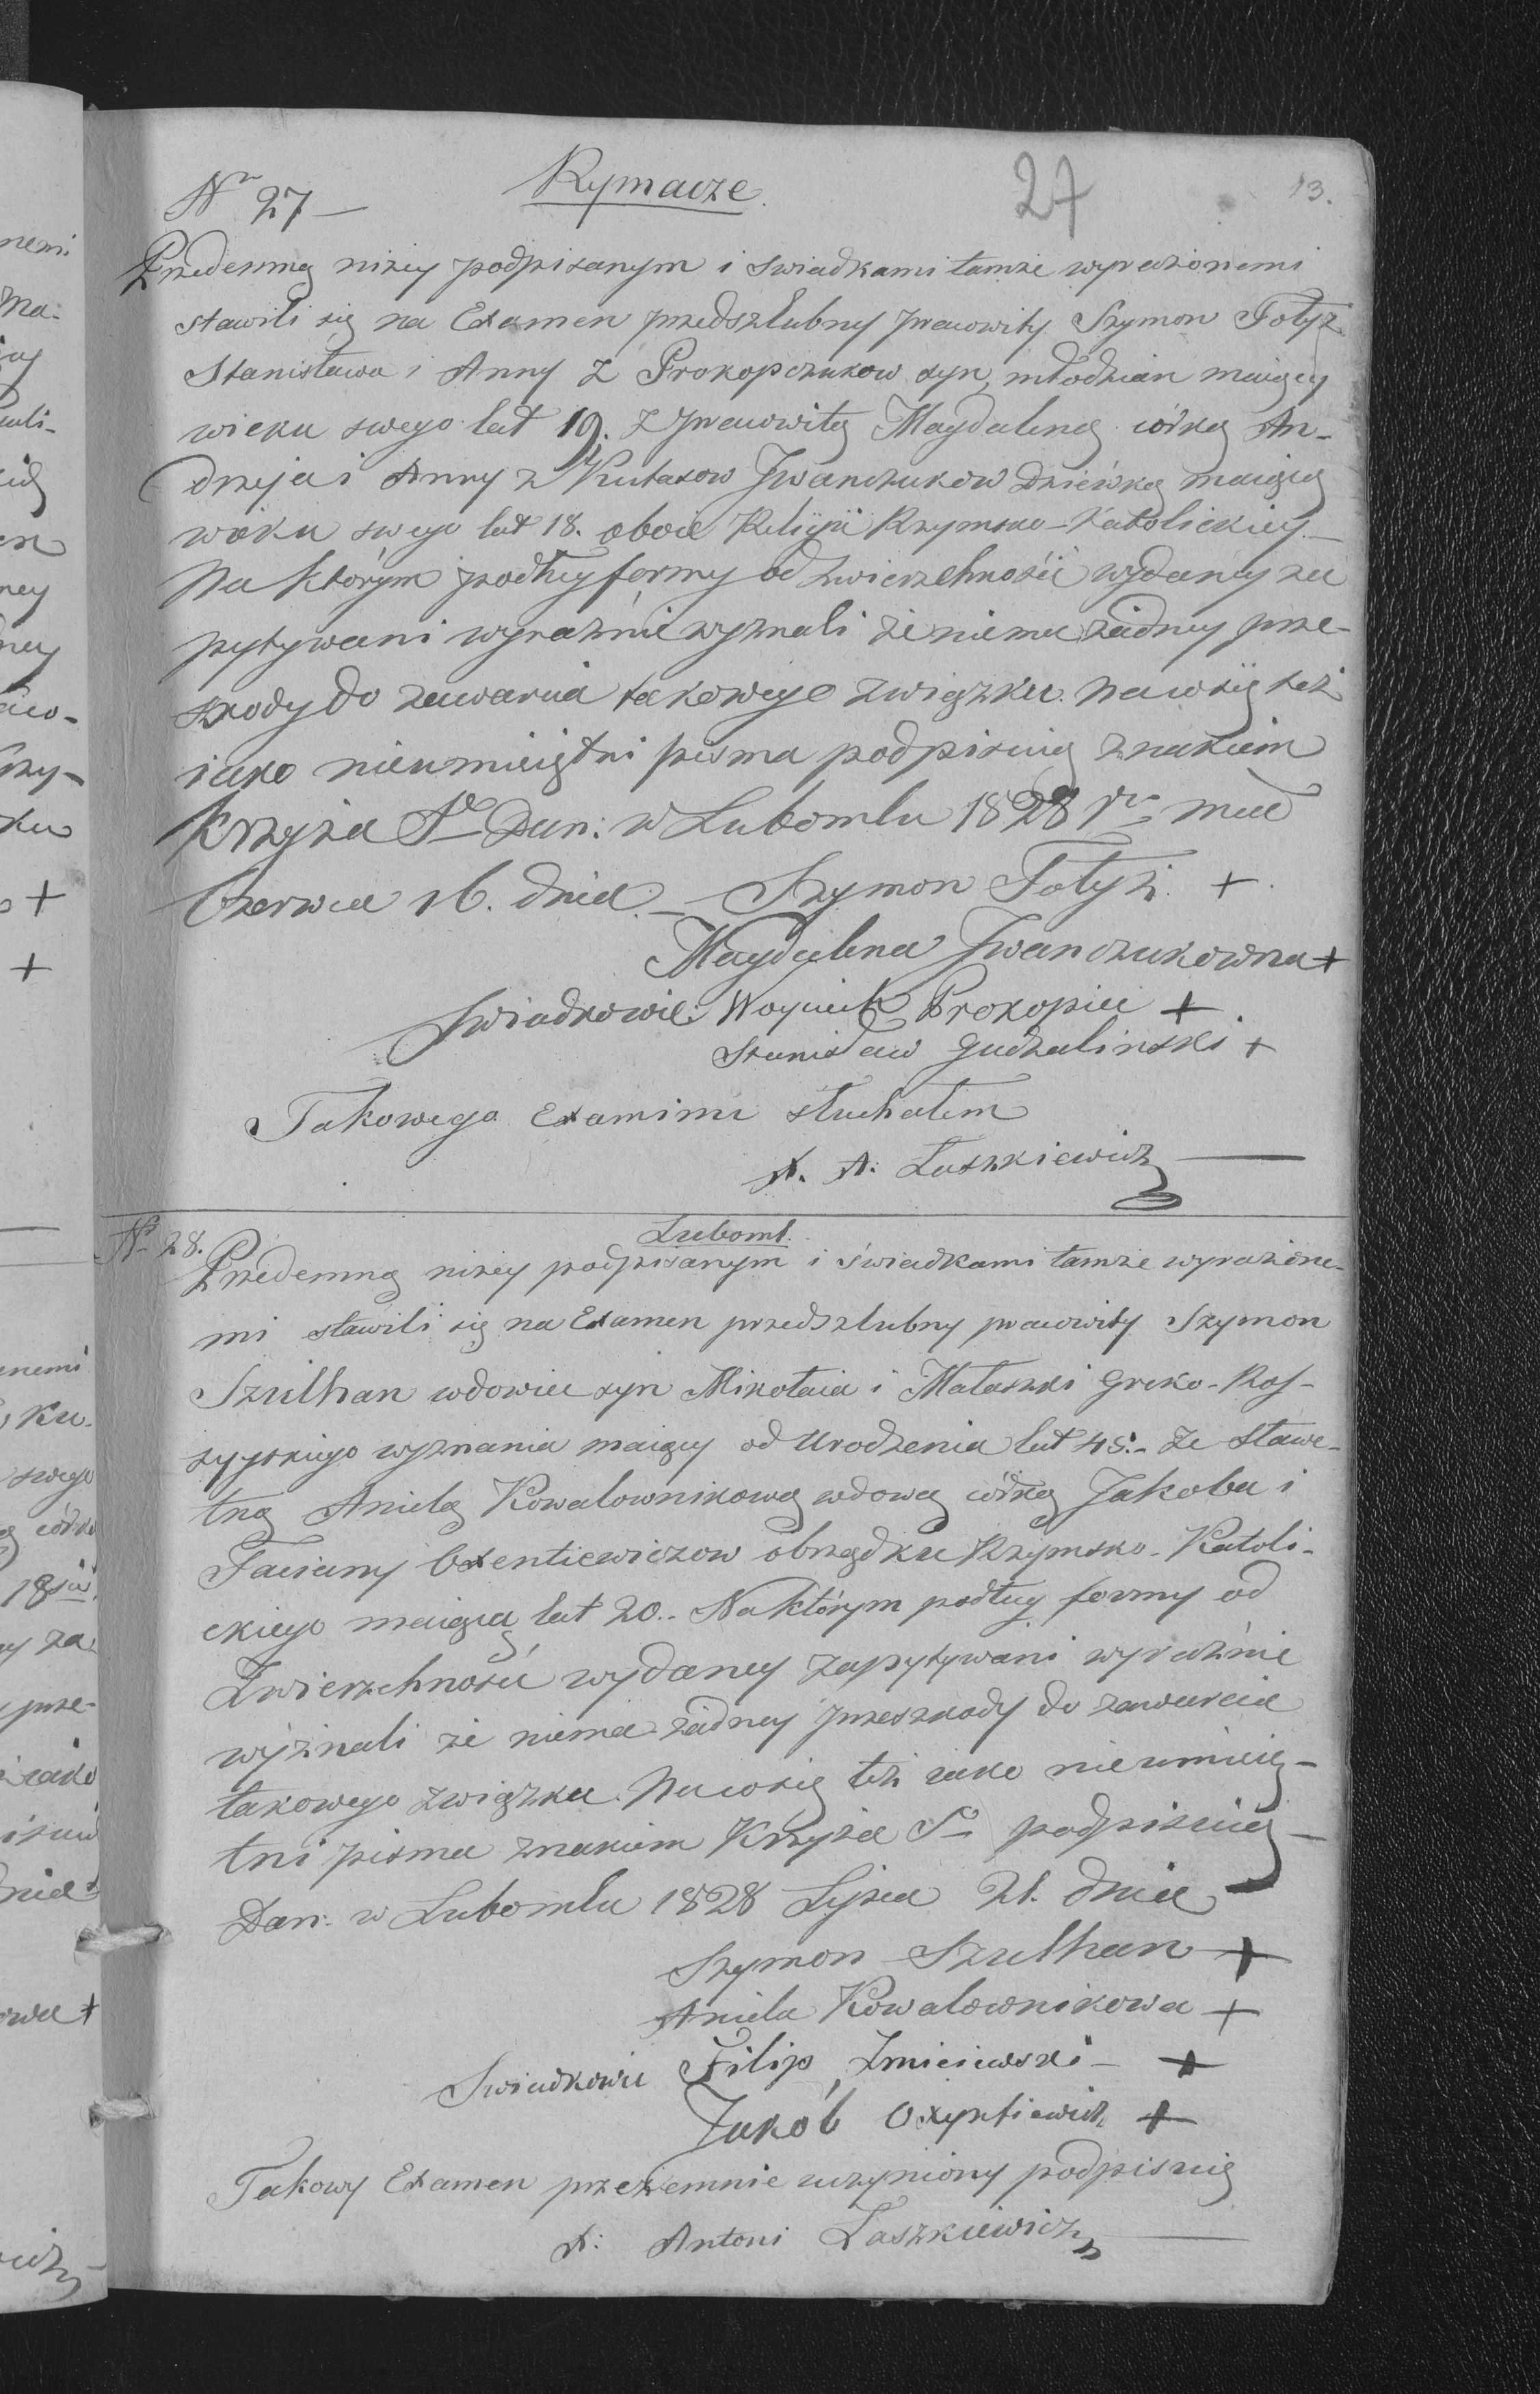 Nr 27 — Rymacze. 27 13.
Przedemną niżey podpisanym i swiadkami tamże wyrażonemi
stawili się na Examen przedszlubny pracowity Szymon Fotyż
Stanisława i Anny z Prokopczukow syn, młodzian maiący
wieku swego lat 19. z pracowitą Magdaleną córką An-
drzeja i Anny z Kutasow Jwanczukow dziéwką maiącą
wieku swego lat 18. oboie Religii Rzymsko-Katolickiey.—
Na którym podług formy od zwierzchności wydaney za
pytywani wyraźnie wyznali że niema żadney prze-
szkody do zawarcia takowego związku. Na co się też
iako nieumieiętni pisma podpisuią znakiem
Krzyża So Dan: w Lubomlu 1828 ru mca
Czerwca 16. dnia.— Szymon Fotyż. +
Magdalena Jwanczukowna +
Swiadkowie: Woyciech Prokopiec +
Stanisław Gudzalinski +
Takowego Examinu słuchałem
X. A: Laszkiewicz
No 28. Luboml.
Przedemną niżey podpisanym i świadkami tamże wyrażone-
mi stawili się na Examen przedszlubny pracowity Szymon
Szulhan wdowiec syn Mikołaia i Mataszki Greko-Ros-
syyskiego wyznania maiący od Urodzenia lat 45.- ze sławe-
tną Anielą Kowalownikową wdową córką Jakoba i
Taciany Oxentiewiczow obrządku Rzymsko-Katoli-
ckiego maiącą lat 20.- Na którym podług formy od
Zwierzchności wydaney zapytywani wyraźnie
wyznali że niema żadney przeszkody do zawarcia
takowego związku. Na co się też iako nieumieię-
tni pisma znakiem Krzyża So podpisuią —
Dan: w Lubomlu 1828 Lipca 21. dnia
Szymon Szulhan +
Aniela Kowalownikowa +
Swiadkowie Filip Zmiciewski — +
Jakób Oxyntiewicz +
Takowy Examen przezemnie uczyniony podpisuię
X: Antoni Laszkiewicz